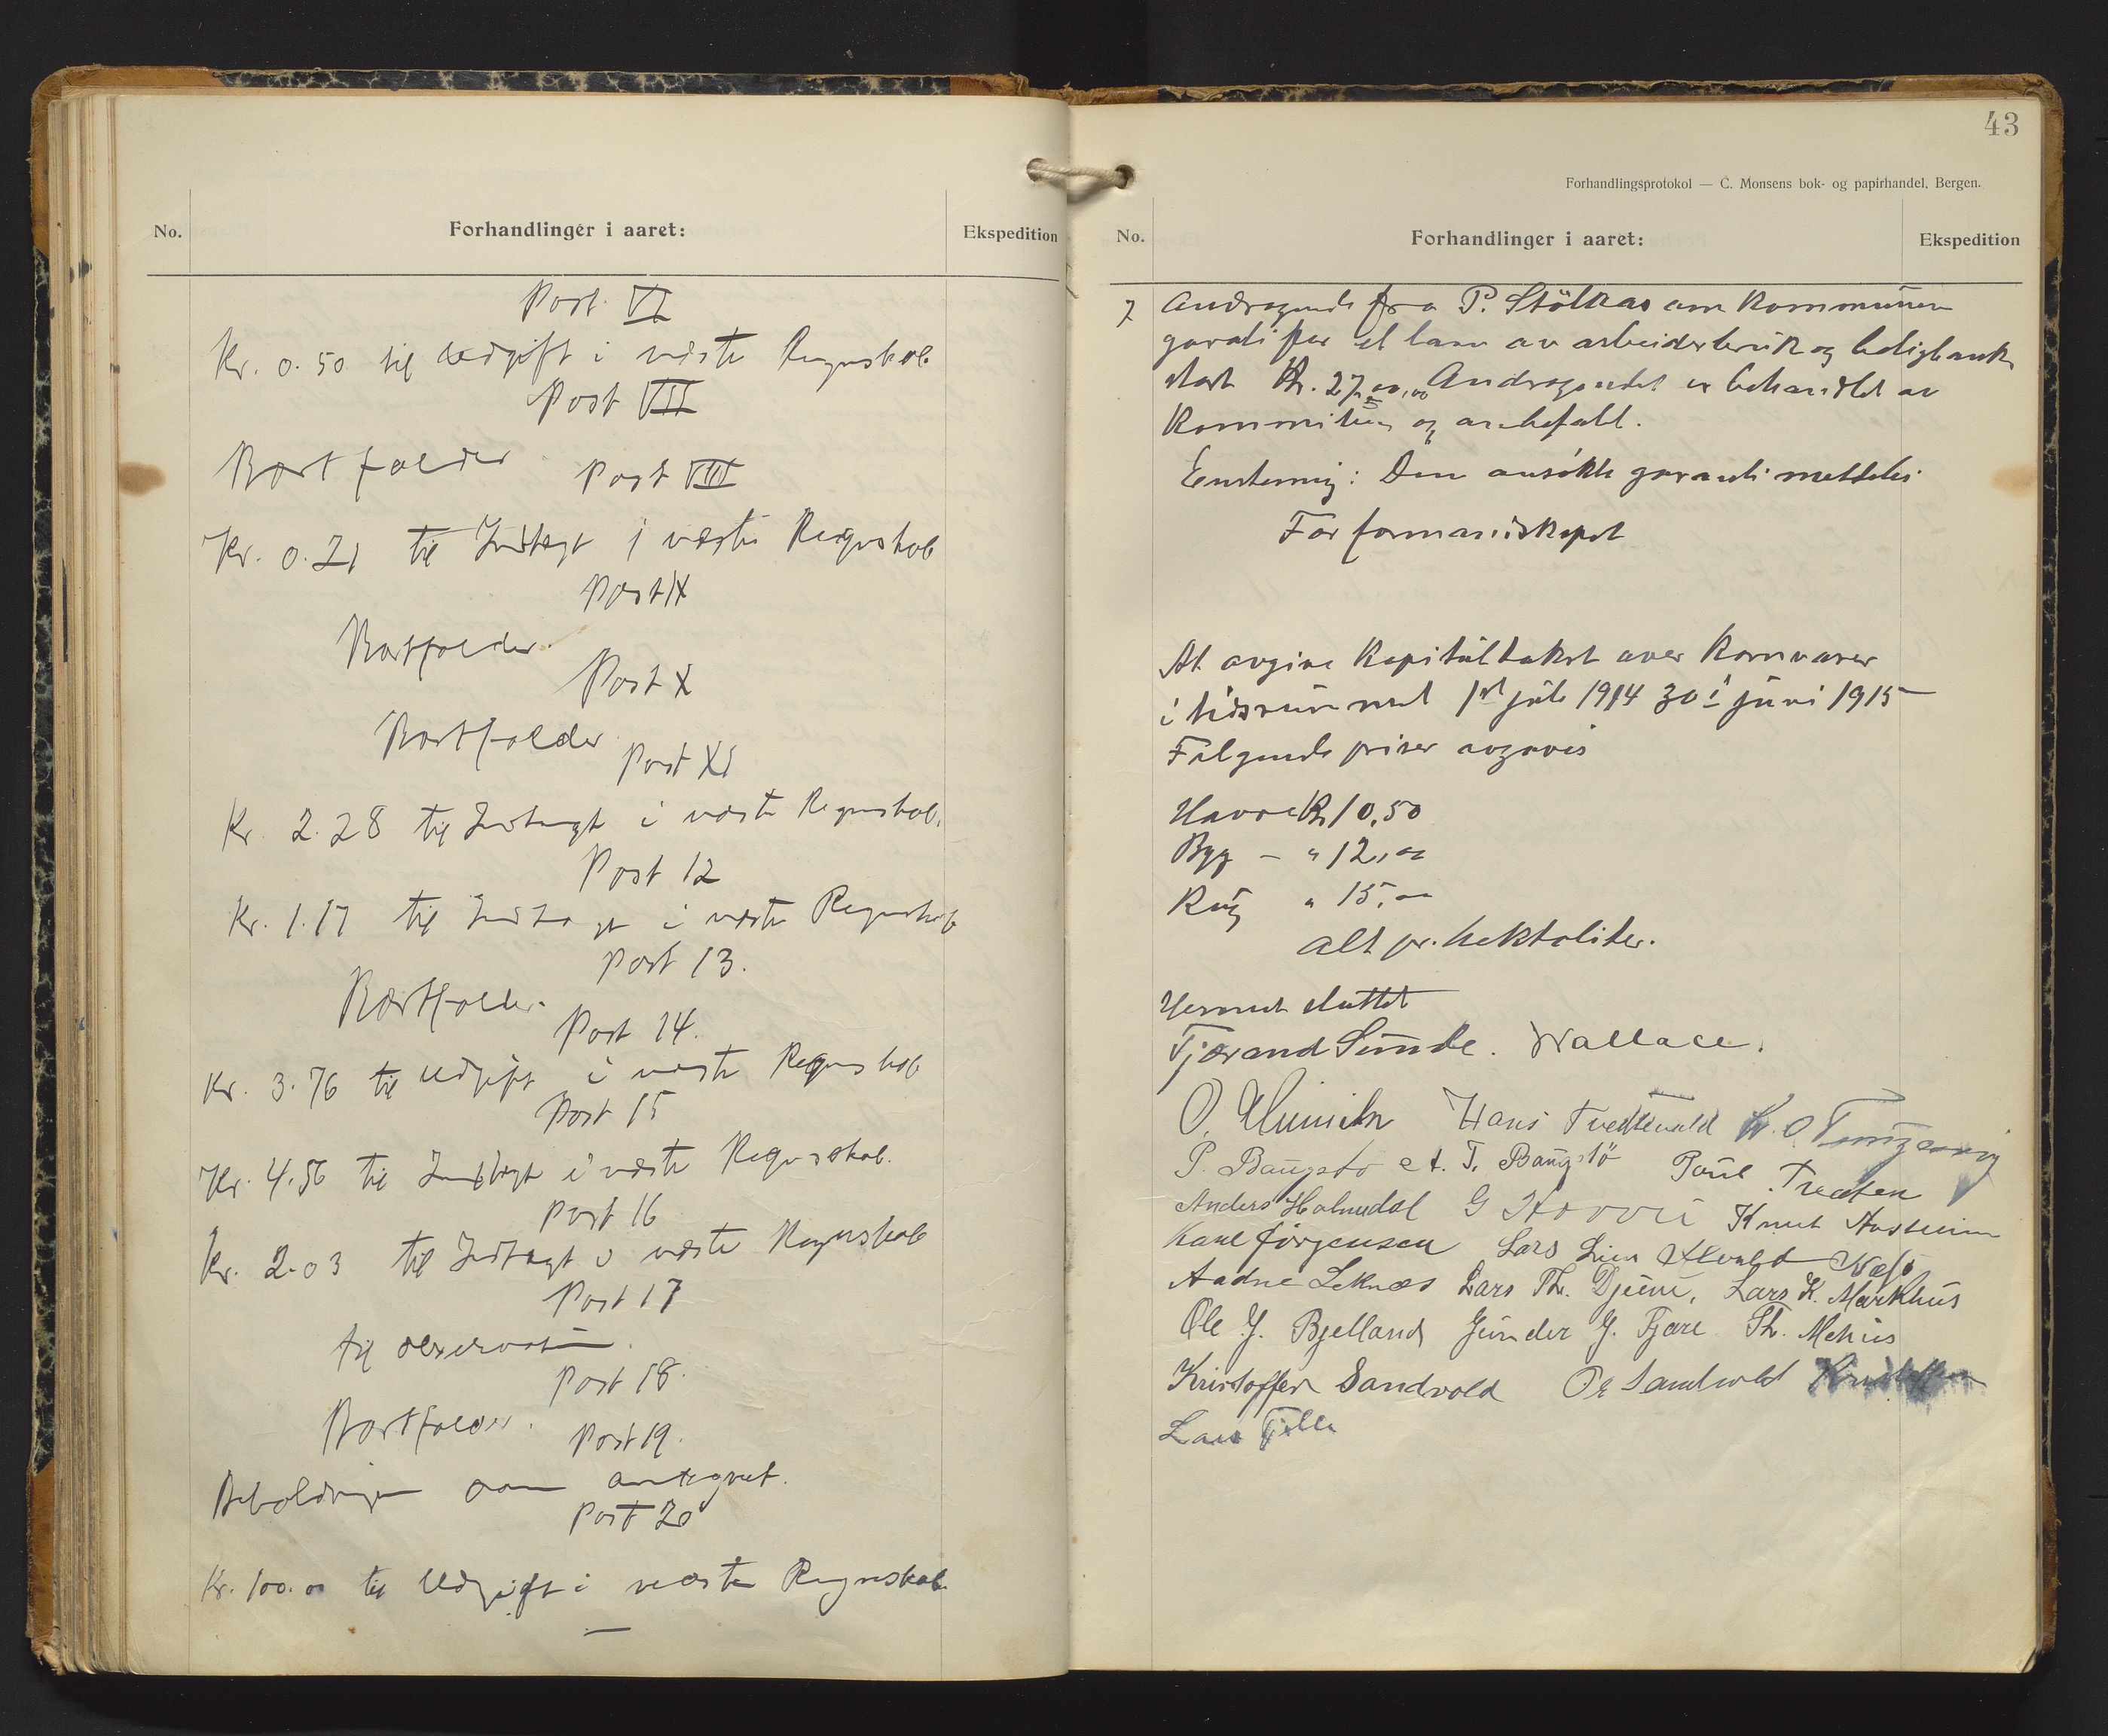 No.
Forhandlinger i aaret:
Ekspedition
Post VI
Kr. 0.50 til Udgift i næste Regnskab
Post VII
Bortfalder
Post VIII
Kr. 0.21 til Indtægt i næste Regnskab
Post IX
Bortfalder.
Post X
Bortfalder
Post XI
Kr. 2.28 til Indtægt i næste Regnskab.
Post 12
Kr. 1.17 til Indtægt i næste Regnskab
Post 13.
Bortfalder.
Post 14.
Kr. 3.76 til Udgift i næste Regnskab
Post 15
Kr. 4.56 til Indtægt i næste Regnskab.
Post 16
Kr. 2.03 til Indtægt i næste Regnskab
Post 17
til observation.
Post 18.
Bortfalder.
Post 19.
Beholdningen som antegnet.
Post 20
Kr. 100.00 til Udgift i næste Regnskab
43
Forhandlingsprotokol — C. Monsens bok- og papirhandel, Bergen.
No.
Forhandlinger i aaret:
Ekspedition
7 Andragende fra P. Stölkas om kommunen
garanti for et laan av arbeiderbruk og boligbank
stort Kr. Andragendet er behandlet av
Kommiteen og anbefalt.
Enstemig: Den ansökte garanti meddeles
For formandskapet
At avgive Kapitaltakst over Kornvarer
i tidsrummet 1st juli 1914 30 juni 1915
Fölgende priser avgaves
Havre Kr 10,50
Byg — " 12,00
Rug " 15,00
alt pr. hektoliter.
Hermed sluttet
Tjerand Sunde. Wallace.
O. Hans Tvedtevold
P. Baugstö T. Baugstö Poul Tvedten
Anders Holmedal G Knut Austreim
Karl Jörgensen Lars Lien
Aadne Leknæs Lars Th. Djuve, Lars K. Markhus
Ole J. Bjelland Gunder G. Fjære Th. Mehus
Kristoffer Sandvold Ole Sandvold Kristoffer
Lars